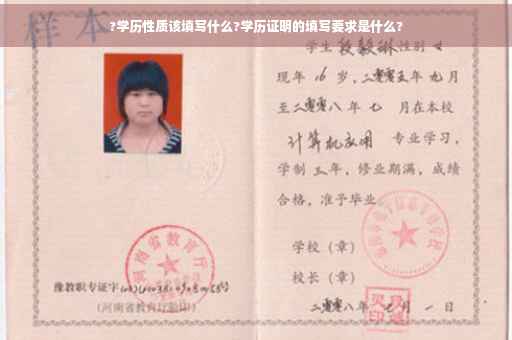 ?学历性质该填写什么?学历证明的填写要求是什么?
样本
学生 段毅琳 性别 女
现年 16 岁，二零零五年 九 月
至二零零八年 七 月在本校
计算机应用 专业学习，
学制 三 年，修业期满，成绩
合格，准予毕业
学校（章）
校长（章）
二零零八年 七 月 一 日
河南省教育厅
豫教职专证字
(河南省教育厅验印)